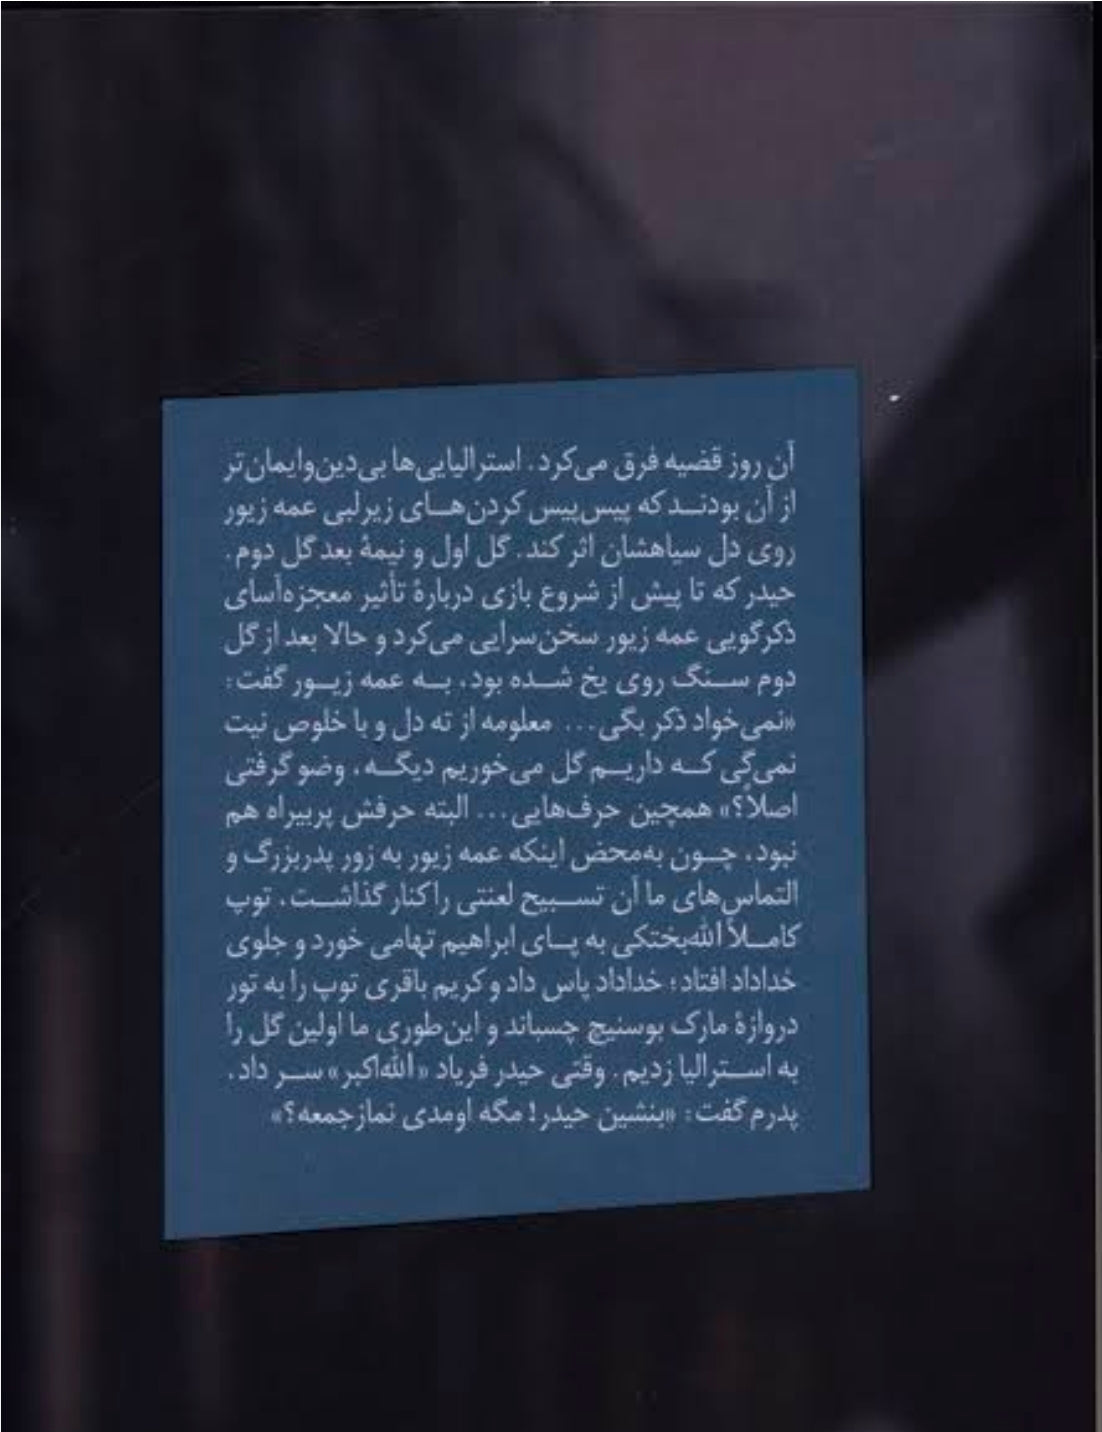 آن روز قضیه فرق می‌کرد. استرالیایی‌ها بی‌دین‌وایمان‌تر
از آن بودنــد که پیس‌پیس کردن‌هــای زیرلبی عمه زیور
روی دل سیاهشان اثر کند. گل اول و نیمهٔ بعد گل دوم.
حیدر که تا پیش از شروع بازی دربارهٔ تأثیر معجزه‌آسای
ذکرگویی عمه زیور سخن‌سرایی می‌کرد و حالا بعد از گل
دوم ســنگ روی یخ شــده بود، بــه عمه زیــور گفت:
«نمی‌خواد ذکر بگی... معلومه از ته دل و با خلوص نیت
نمی‌گی کــه داریــم گل می‌خوریم دیگــه، وضو گرفتی
اصلاً؟» همچین حرف‌هایی... البته حرفش پربیراه هم
نبود، چــون به‌محض اینکه عمه زیور به زور پدربزرگ و
التماس‌های ما آن تســبیح لعنتی را کنار گذاشــت، توپ
کامــلاً الله‌بختکی به پــای ابراهیم تهامی خورد و جلوی
خداداد افتاد؛ خداداد پاس داد و کریم باقری توپ را به تور
دروازهٔ مارک بوسنیچ چسباند و این‌طوری ما اولین گل را
به اســترالیا زدیم. وقتی حیدر فریاد «الله‌اکبر» ســر داد،
پدرم گفت: «بنشین حیدر! مگه اومدی نمازجمعه؟»